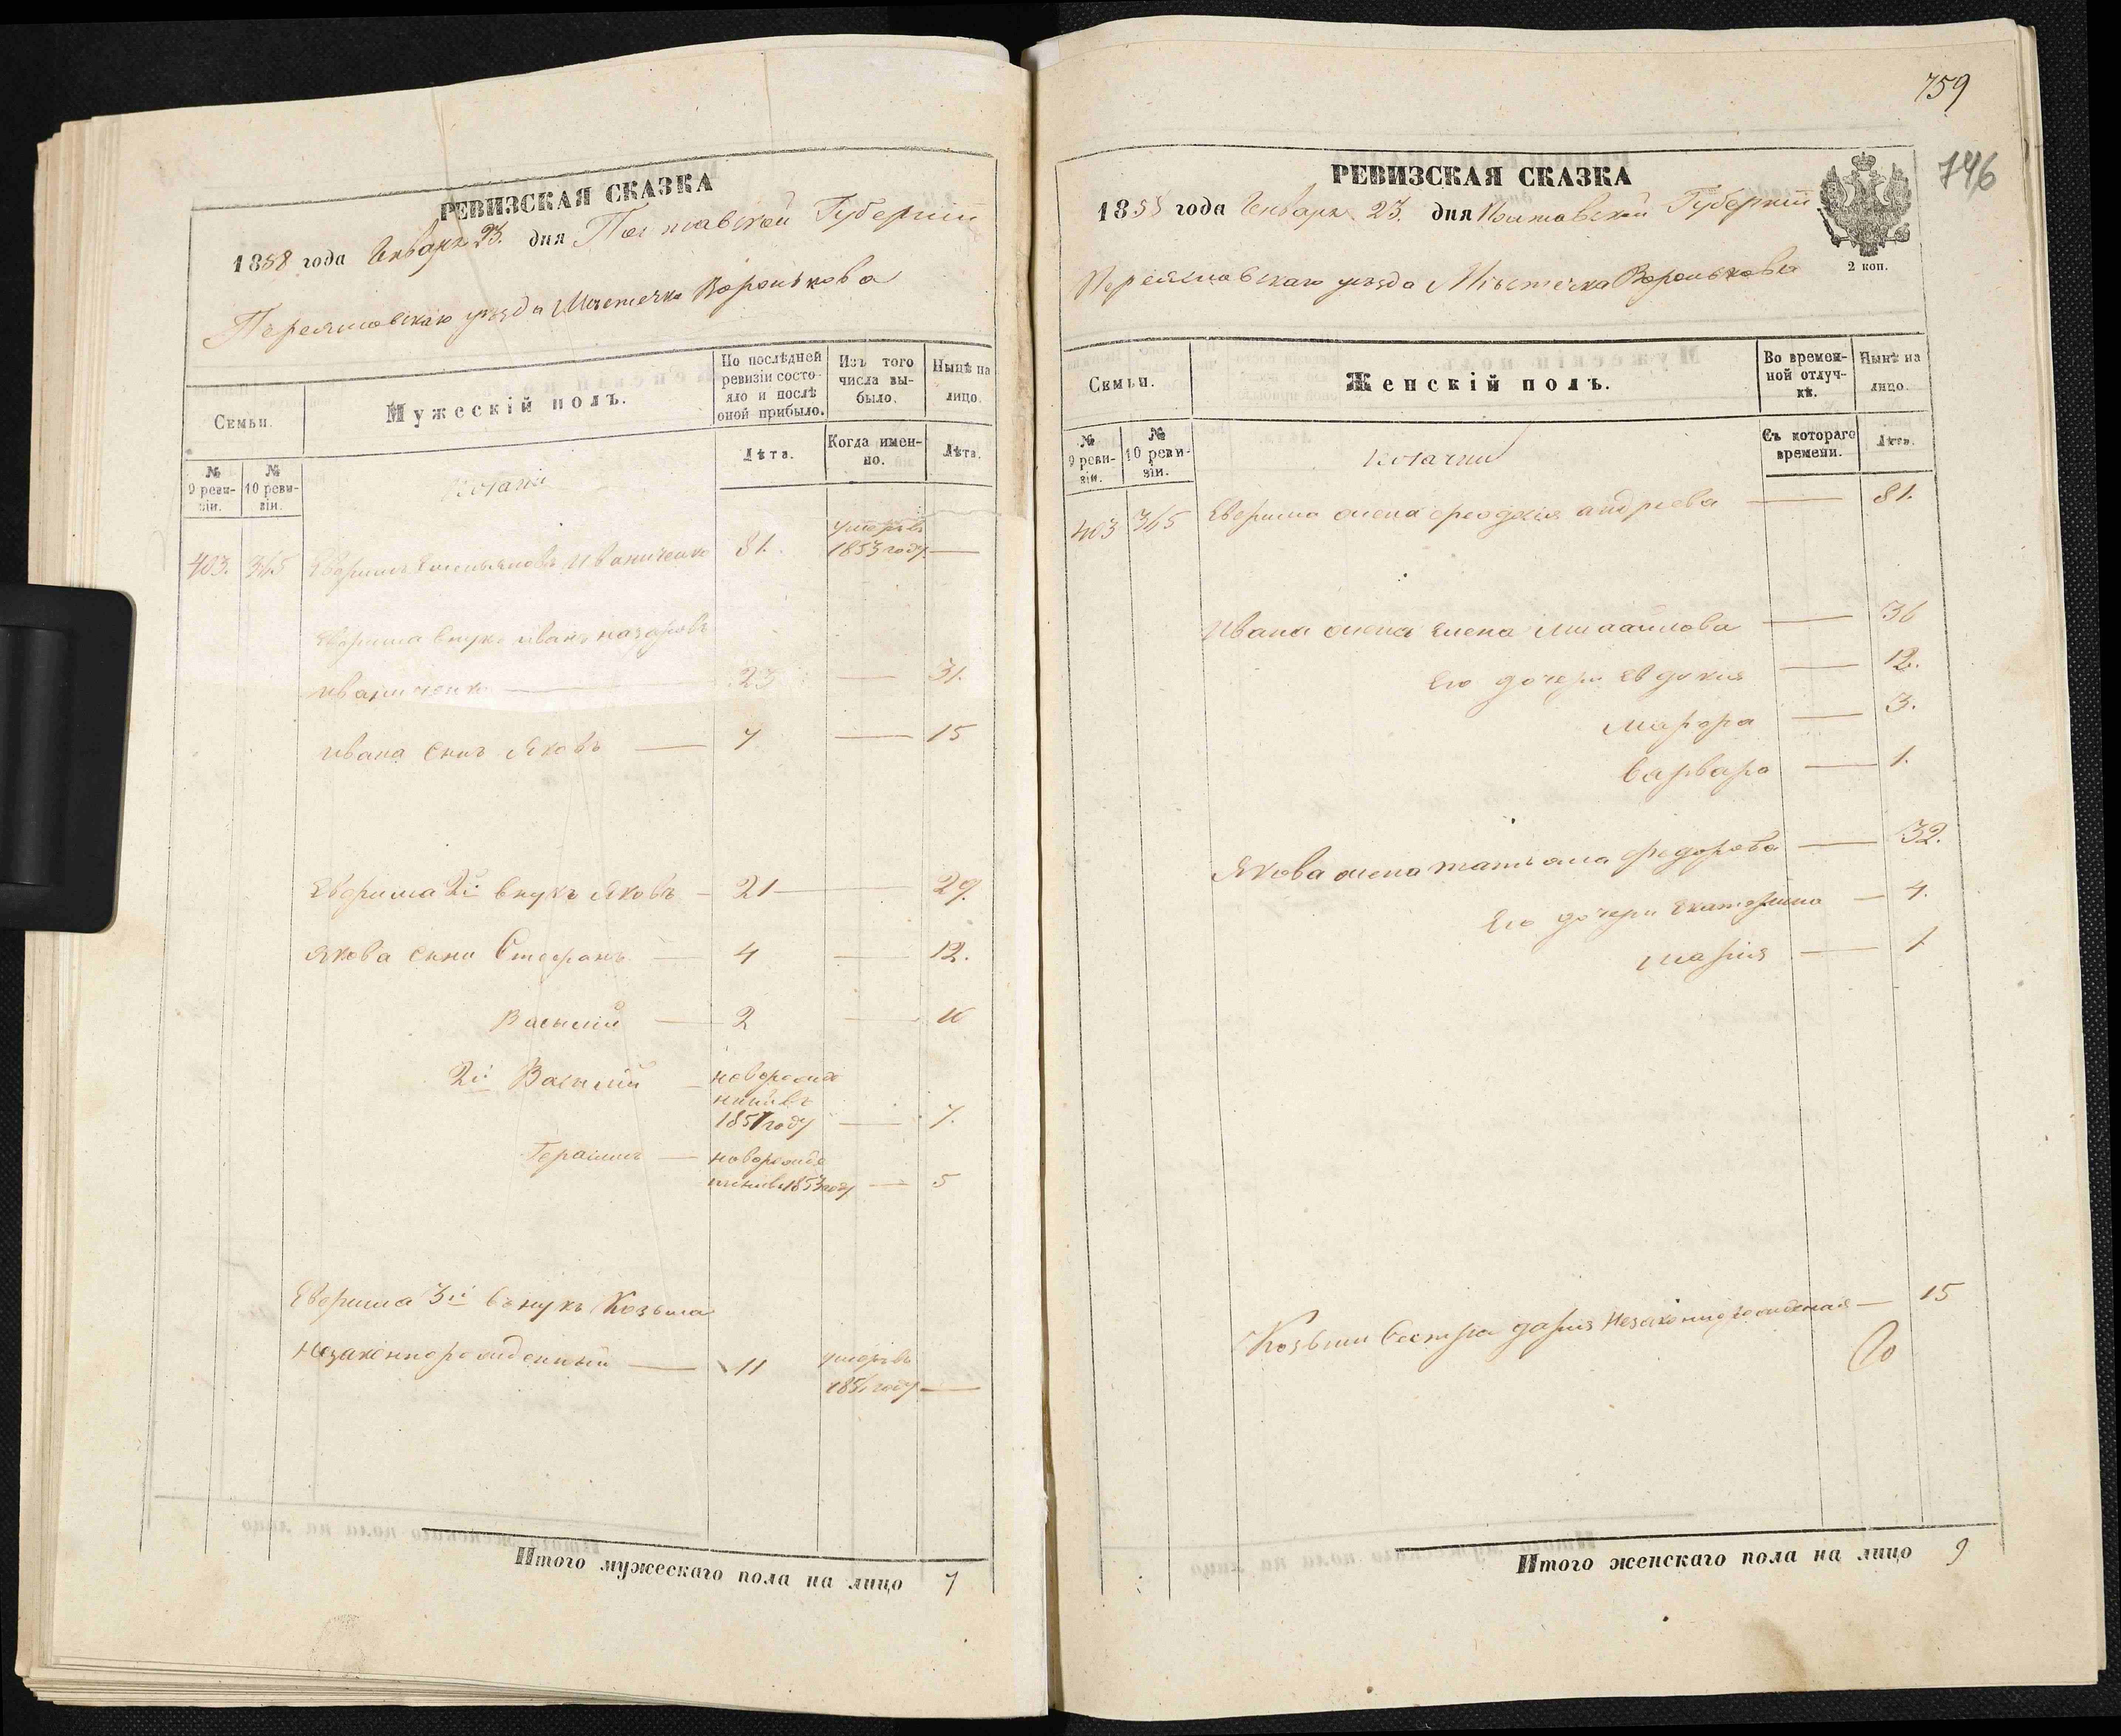 РЕВИЗСКАЯ СКАЗКА
1858 года Генваря 23. дня Полтавской Губернии
Переяславскаго уѣзда Мѣстечка Воронькова
Семьи.
Мужескій полъ.
По послѣдней ревизіи состояло и послѣ оной прибыло.
Изъ того числа выбыло.
Нынѣ на лицо.
№ 9 ревизіи.
№ 10 ревизіи.
Лѣта.
Когда именно.
Лѣта.
Козаки
403. 365 Ефримъ Емельяновъ Иваниченко 81. умеръ въ 1853 году —
Ефрима внукъ Иванъ Назаровъ
Иваниченко — 23 — 31.
Ивана сынъ Яковъ — 7 — 15
Ефрима 2й внукъ Яковъ — 21 — 29.
Якова сыни Стефанъ — 4 — 12.
Василій — 2 — 10
2й Василій — новорожденный въ 1851 году — 7.
Герасимъ — новорожденный въ 1853 году — 5
Ефрима 3й внукъ Козьма
незаконнорожденный — 11 умеръ въ 1851 году —
Итого мужескаго пола на лицо 7
759
746
РЕВИЗСКАЯ СКАЗКА
1858 года Генваря 23. дня Полтавской Губерніи
2 коп.
Переяславскаго уѣзда Мѣстечка Воронькова
Семьи.
Женскій полъ.
Во временной отлучкѣ.
Нынѣ на лицо.
№ 9 ревизіи.
№ 10 ревизіи.
Съ котораго времени.
Лѣта.
Козачки
403 365 Ефрима жена Феодосія Андреева — 81.
Ивана жена Елена Михайлова — 36
Его дочери Евдокія — 12.
Марфа — 3.
Варвара — 1.
Якова жена Татьяна Федорова — 32.
Его дочери Екатерина — 4.
Марія — 1
Козьми сестра Дарія незаконнорожденая — 15
Итого женскаго пола на лицо 9